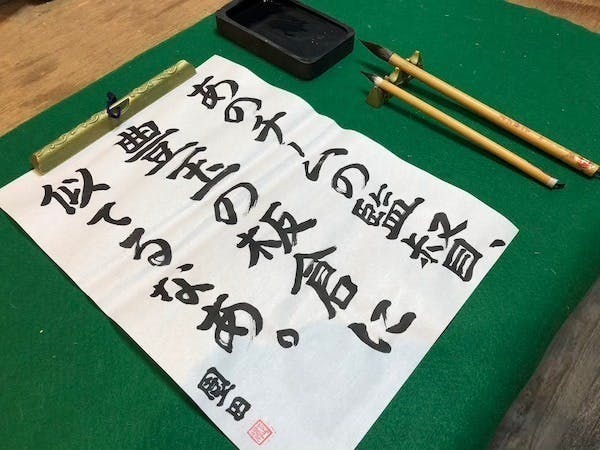 あのチームの監督、
豊玉の板倉に
似てるなあ。